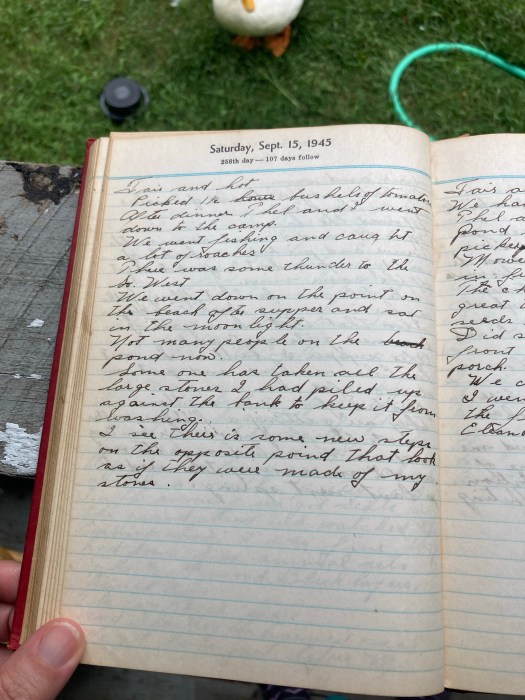 Saturday, Sept. 15, 1945
258th day — 107 days follow
Fair and hot
Picked 1½ bushels of tomatoes
After dinner Thel and I went
down to the camp.
We went fishing and caught
a lot of roaches
There was some thunder to the
So. West
We went down on the point on
the beach after supper and sat
in the moon light.
Not many people on the beach
pond now.
Some one has taken all the
large stones I had piled up
against the bank to keep it from
washing.
I see their is some new steps
on the opposite point that look
as if they were made of my
stones.
Fair a
We ha
Thel a
pond
picke
in f
The c
great
seeds
Did s
front
porch.
We c
I wen
the f